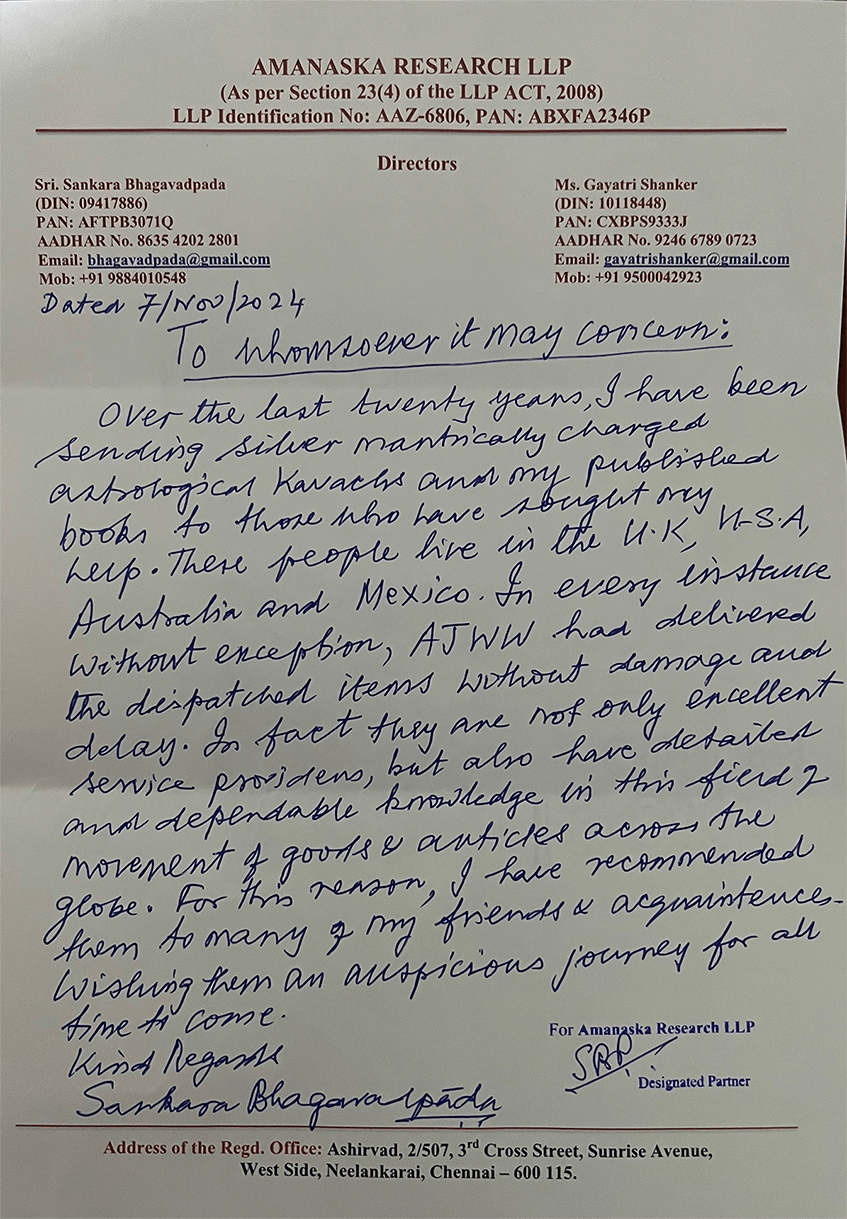 AMANASKA RESEARCH LLP
(As per Section 23(4) of the LLP ACT, 2008)
LLP Identification No: AAZ-6806, PAN: ABXFA2346P
Directors
Sri. Sankara Bhagavadpada
(DIN: 09417886)
PAN: AFTPB3071Q
AADHAR No. 8635 4202 2801
Email: bhagavadpada@gmail.com
Mob: +91 9884010548
Ms. Gayatri Shanker
(DIN: 10118448)
PAN: CXBPS9333J
AADHAR No. 9246 6789 0723
Email: gayatrishanker@gmail.com
Mob: +91 9500042923
Dated 7/Nov/2024
To whomsoever it may concern:
Over the last twenty years, I have been
sending silver mantrically charged
astrological Kavachs and my published
books to those who have sought my
help. These people live in the U.K, U.S.A,
Australia and Mexico. In every instance
without exception, AJWW had delivered
the dispatched items without damage and
delay. In fact they are not only excellent
service providers, but also have detailed
and dependable knowledge in this field of
movement of goods & articles across the
globe. For this reason, I have recommended
them to many of my friends & acquaintences.
Wishing them an auspicious journey for all
time to come.
Kind Regards
Sankara Bhagavatpāda
For Amanaska Research LLP
SBP
Designated Partner
Address of the Regd. Office: Ashirvad, 2/507, 3rd Cross Street, Sunrise Avenue,
West Side, Neelankarai, Chennai – 600 115.